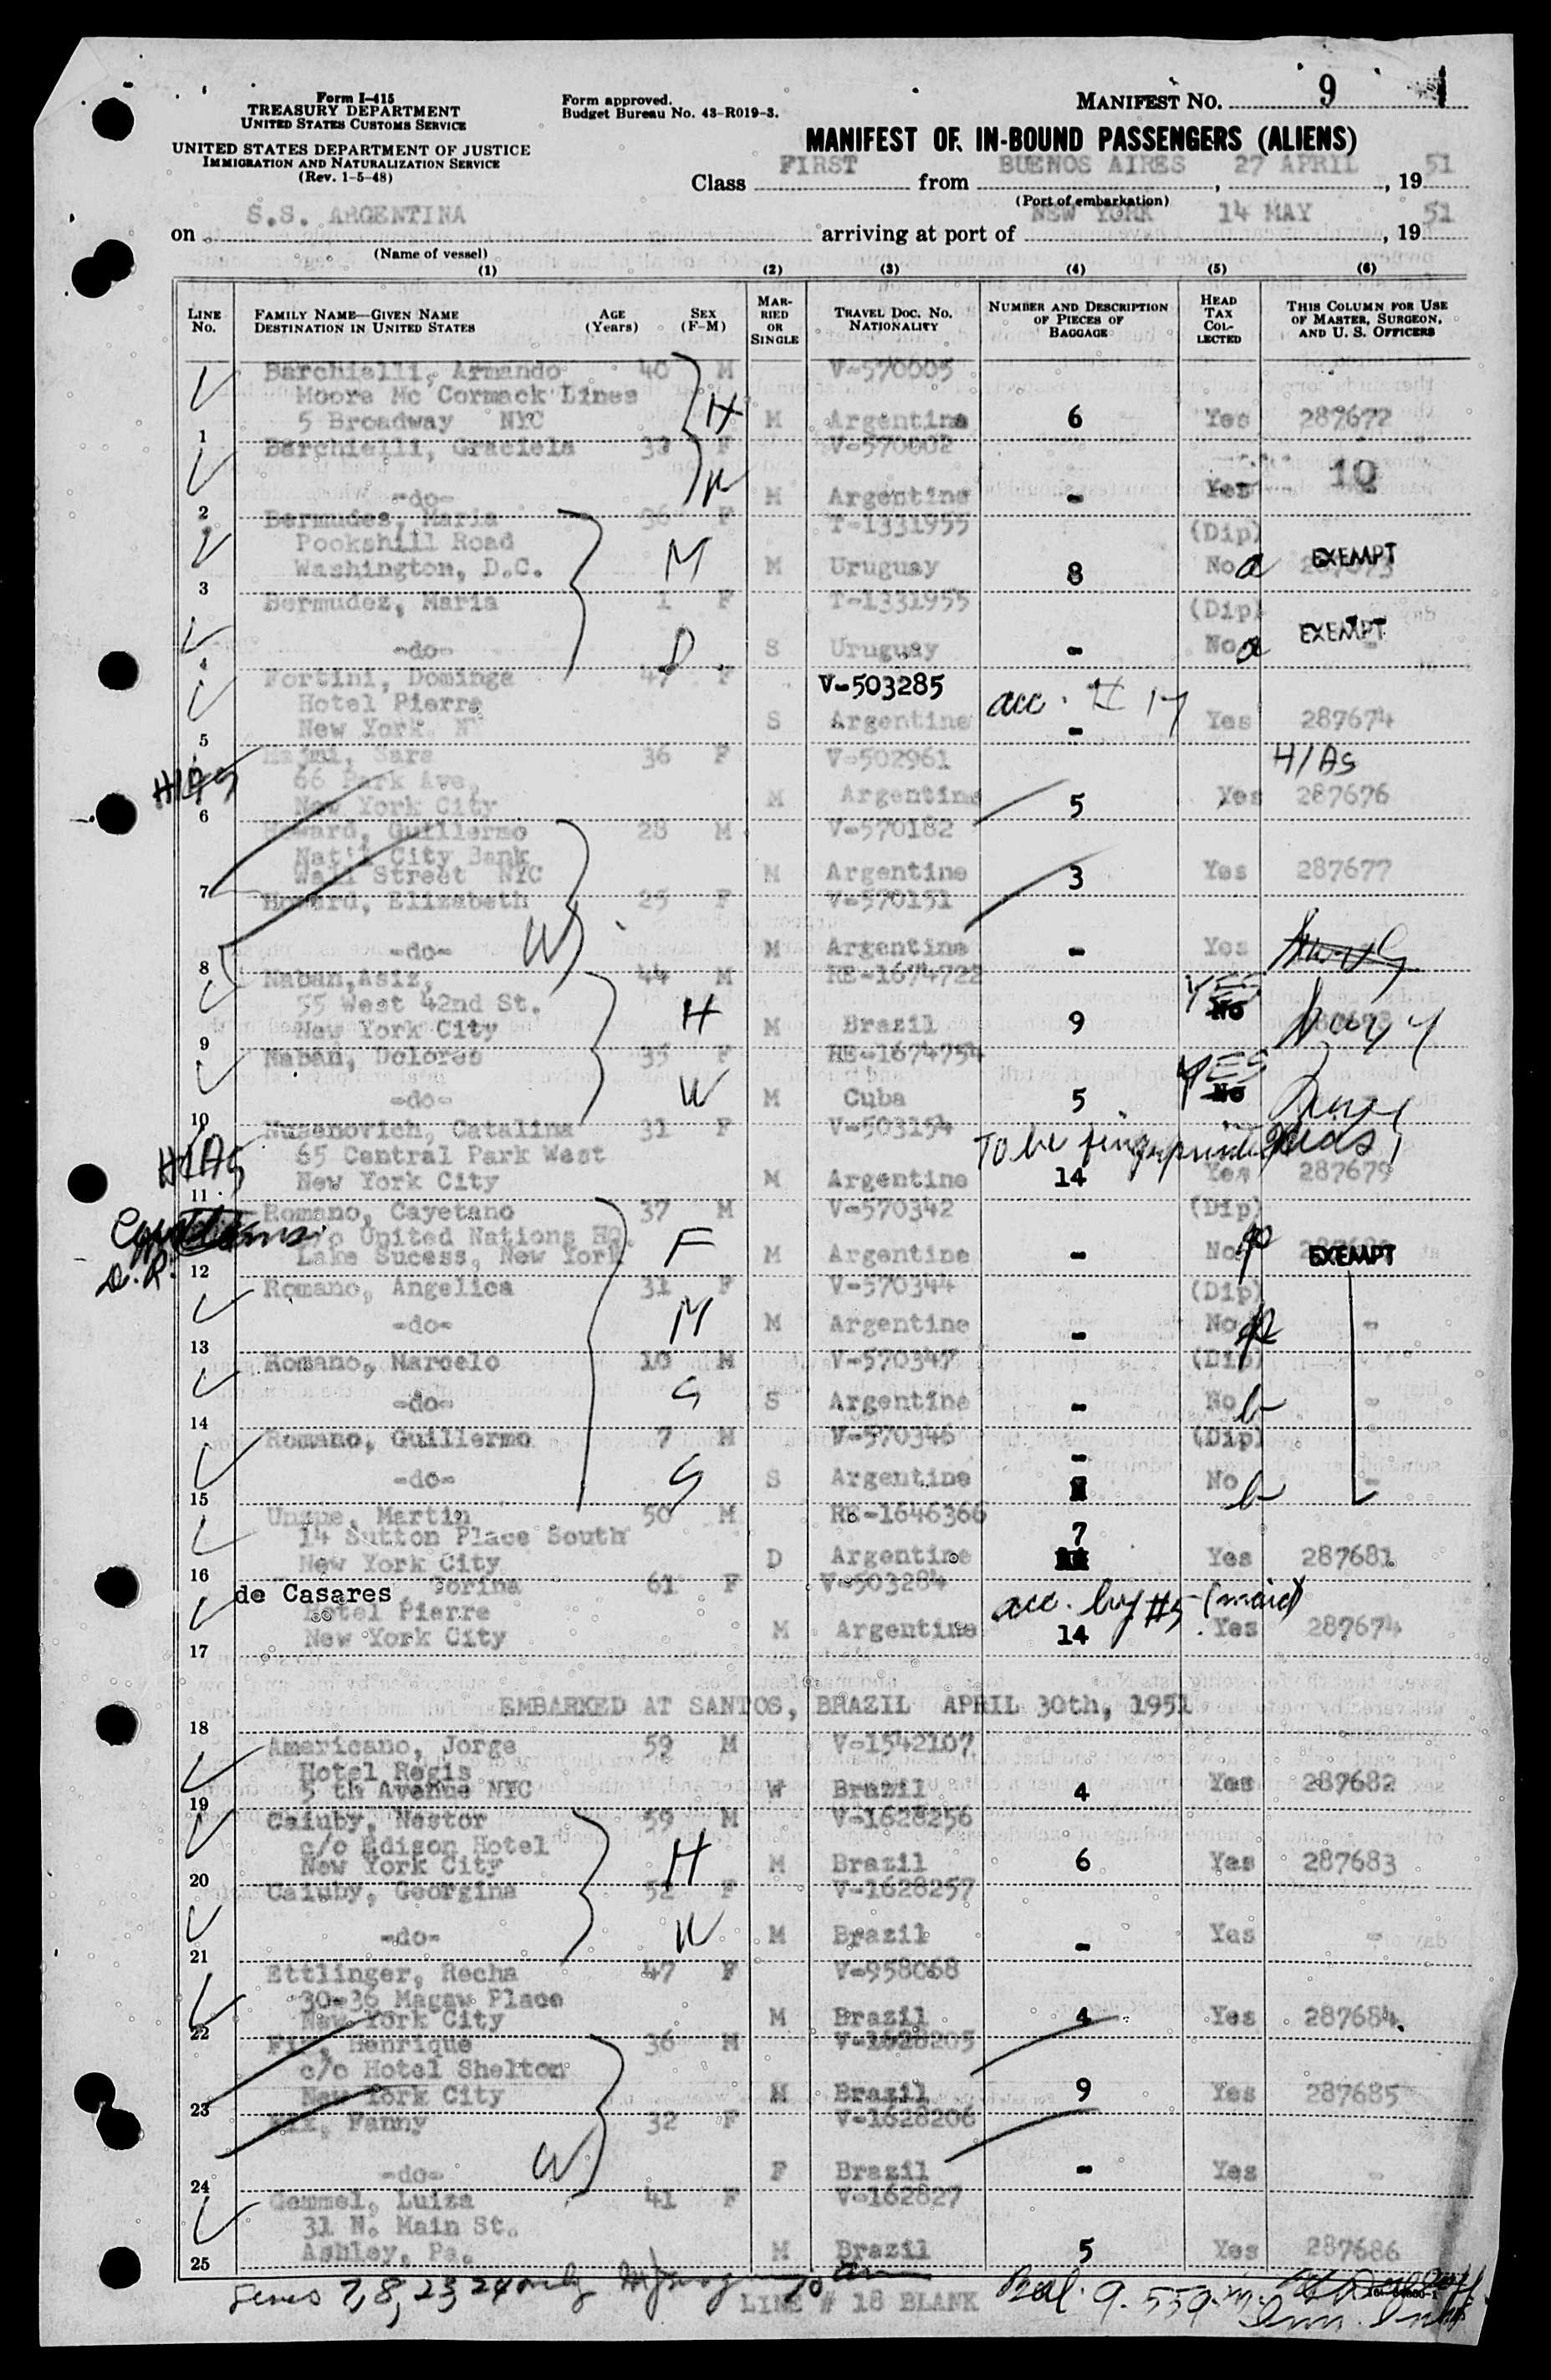 Form I-415
TREASURY DEPARTMENT
UNITED STATES CUSTOMS SERVICE
UNITED STATES DEPARTMENT OF JUSTICE
IMMIGRATION AND NATURALIZATION SERVICE
(Rev. 1-5-48)
Form approved.
Budget Bureau No. 43-R019-3.
MANIFEST NO. 9
MANIFEST OF IN-BOUND PASSENGERS (ALIENS)
Class FIRST from BUENOS AIRES, 27 APRIL, 1951
(Port of embarkation)
on S.S. ARGENTINA arriving at port of NEW YORK 14 MAY, 1951
(Name of vessel)
(1) (2) (3) (4) (5) (6)
LINE No. FAMILY NAME—GIVEN NAME DESTINATION IN UNITED STATES AGE (Years) SEX (F-M) MARRIED OR SINGLE TRAVEL DOC. NO. NATIONALITY NUMBER AND DESCRIPTION OF PIECES OF BAGGAGE HEAD TAX COLLECTED THIS COLUMN FOR USE OF MASTER, SURGEON, AND U. S. OFFICERS
Barchielli, Armando 40 M V-570005
Moore Mc Cormack Lines H
5 Broadway NYC M Argentina 6 Yes 287672
1
Barchielli, Graciela F V-570002
W 10
-do- M Argentine - Yes
2
Bermudes, Maria 36 F T-1331955
Pookshill Road M (Dip)
Washington, D.C. M Uruguay 8 No a EXEMPT
3
Bermudez, Maria 1 F T-1331955
(Dip)
-do- D S Uruguay - No a EXEMPT
4
Fortini, Dominga 47 F V-503285
Hotel Pierre acc. # 17
New York NY S Argentine - Yes 287674
5
Sara 36 F V-502961 HIAS
HIAS 66 Park Ave,
New York City M Argentine 5 Yes 287676
6
Howard, Guillermo 28 M V-570182
Nat'l City Bank
Wall Street NYC M Argentine 3 Yes 287677
7
Howard, Elizabeth 25 F V-570151
-do- W M Argentine - Yes
8
Naban, Asiz, 44 M RE-1674722
55 West 42nd St. H YES
New York City M Brazil 9 No
9
Naban, Dolores 35 F RE-1674754
W YES
-do- M Cuba 5 No
10
Nusenovich, Catalina 31 F V-503154
HIAS 65 Central Park West To be fingerprinted HIAS
New York City M Argentine 14 Yes 287679
11
Romano, Cayetano 37 M V-570342 (Dip)
c/o United Nations HQ. F
Lake Sucess, New York M Argentine - No EXEMPT
12
Romano, Angelica 31 F V-570344 (Dip)
-do- M M Argentine - No -
13
Romano, Marcelo 10 M V-570347 (Dip)
-do- S S Argentine - No b -
14
Romano, Guillermo 7 M V-570346 (Dip)
-do- S S Argentine - No b -
15
Unzue, Martin 50 M RE-1646366
14 Sutton Place South 7
New York City D Argentine Yes 287681
16
de Casares, Corina 61 F V-503284
Hotel Pierre acc. by #5 (maid)
New York City M Argentine 14 Yes 287674
17
EMBARKED AT SANTOS, BRAZIL APRIL 30th, 1951
18
Americano, Jorge 59 M V-1542107
Hotel Regis
5 th Avenue NYC W Brazil 4 Yes 287682
19
Caiuby, Nestor 59 M V-1628256
c/o Edison Hotel H
New York City M Brazil 6 Yes 287683
20
Caiuby, Georgina 52 F V-1628257
-do- W M Brazil - Yes -
21
Ettlinger, Recha 47 F V-958068
30-36 Magaw Place
New York City M Brazil 4 Yes 287684
22
Henrique 36 M V-1628205
c/o Hotel Shelton
New York City M Brazil 9 Yes 287685
23
Fanny 32 F V-1628206
-do- W F Brazil - Yes -
24
Gemmel, Luiza 41 F V-162827
31 N. Main St.
Ashley, Pa. M Brazil 5 Yes 287686
25
Lines 7, 8, 23 24 only
LINE # 18 BLANK
Bal.